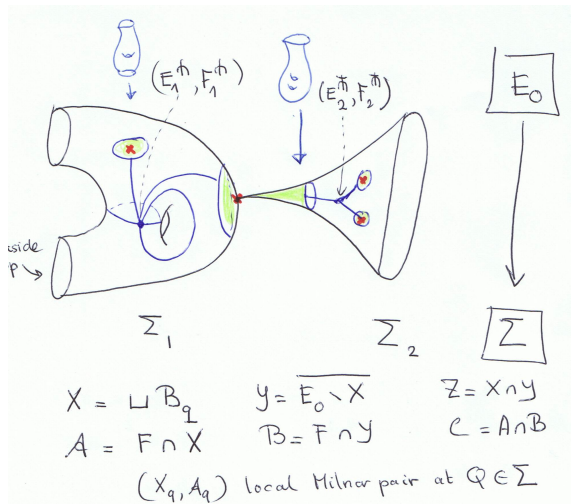 (E₁^⋔, F₁^⋔)
(E₂^⋔, F₂^⋔)
E₀
p
Σ₁
Σ₂
Σ
X = ⊔ B_q
Y = \overline{E₀ ∖ X}
Z = X ∩ Y
A = F ∩ X
B = F ∩ Y
C = A ∩ B
(X_q, A_q) local Milnor pair at Q ∈ Σ